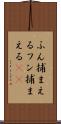 ふん捕まえ
るフン捕ま
える